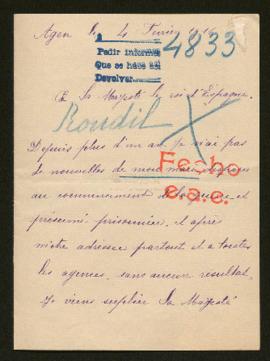 Agen le 4 Février
4833
Pedir informe
Que se hara
Devolver
A Sa Majesté le roi d'Espagne
Roudil
Depuis plus d'un an je n'ai pas
de nouvelles de mon mari disparu
Fecho
au commencement de la guerre et
e.a.e.
présumé prisonnier, et après
m'être adressée partout et à toutes
les agences, sans aucun resultat,
Je viens supplier Sa Majesté